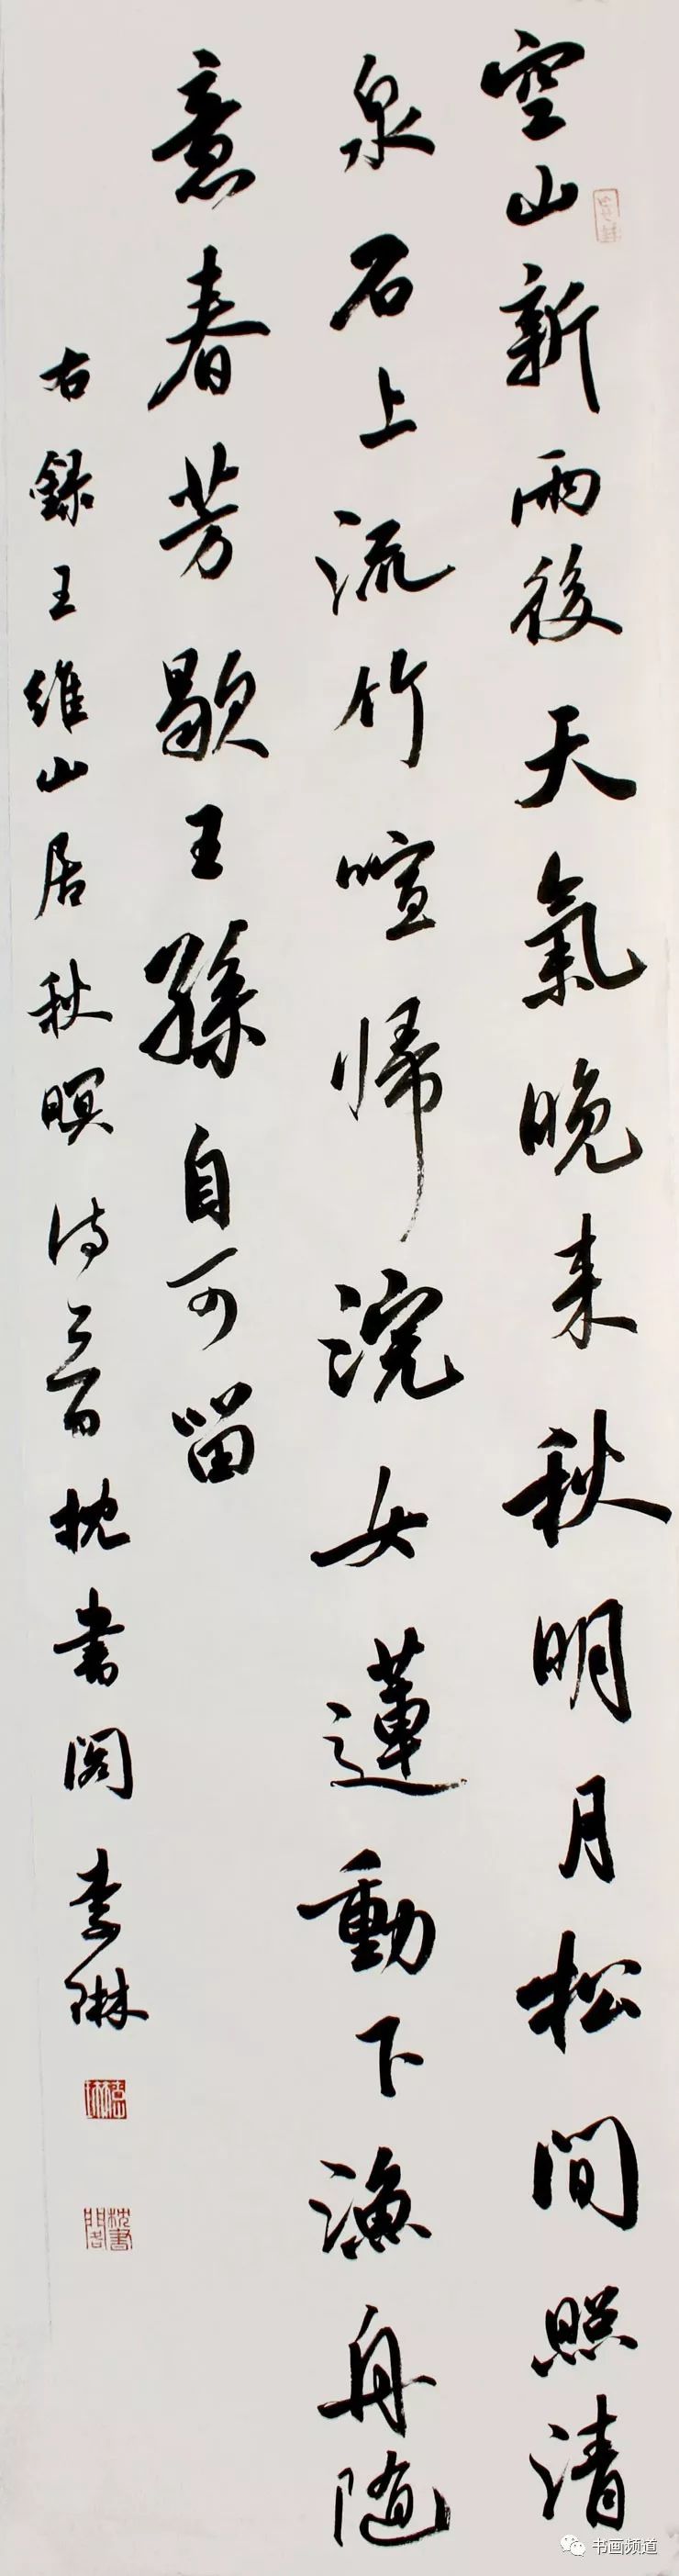 空山新雨後天氣晚来秋明月松間照清
泉石上流竹喧歸浣女蓮動下漁舟随
意春芳歇王孫自可留
右録王維山居秋暝詩一首枕書閣李琳
枕書閣
书画频道